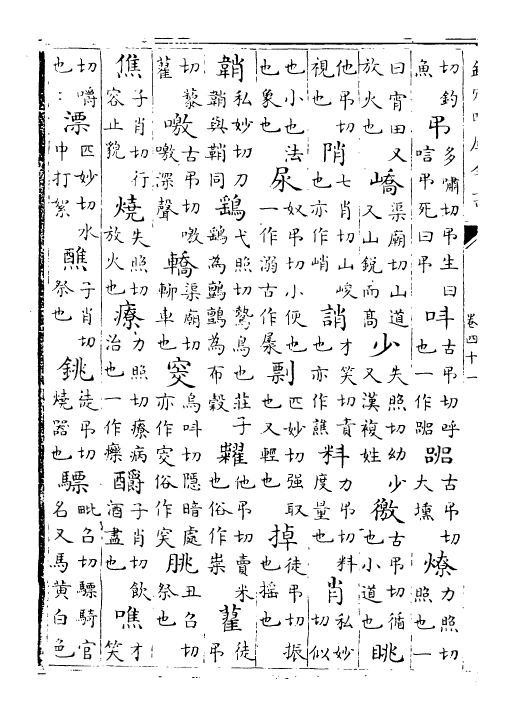 欽定四庫全書
卷四十一
切釣魚 弔 多嘯切弔生曰唁弔死曰弔 叫 古弔切呼也一作嘂 嘂 古弔切大壎 燎 力照切照也一
曰宵田又放火也 嶠 渠廟切山道又山銳而高 少 失照切幼少又漢複姓 徼 古弔切循也小道也 眺
他弔切視也 陗 七肖切山峻也亦作峭 誚 才笑切責也亦作譙 料 力弔切料度量也 肖 私妙切似
也小也法也象也 尿 奴弔切小便也一作溺古作㞙 剽 匹妙切强取也又輕也 掉 徒弔切振也摇也
韒 私妙切刀韒與鞘同 鷂 弋照切鷙鳥也莊子鷂為鸇鸇為布穀 糶 他弔切賣米也俗作祟 藋 徒弔
切藜藋 噭 古弔切噭噭深聲 轎 渠廟切轎車也 窔 烏叫切隱暗處亦作穾俗作突 朓 丑召切祭也
僬 子肖切行容止貌 燒 失照切放火也 療 力照切療病治也一作㿋 釂 子肖切飲酒盡也 噍 才笑
切嚼也 漂 匹妙切水中打絮 醮 子肖切祭也 銚 徒弔切燒器也 驃 毗召切驃騎官名又馬黄白色